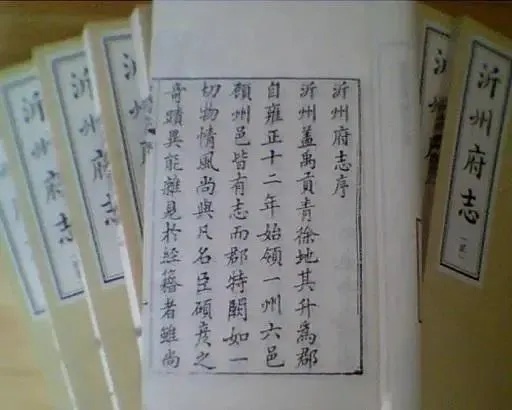 沂州府志序
沂州蓋禹貢青徐地其升為郡
自雍正十二年始領一州六邑
顧州邑皆有志而郡特闕如一
切物情風尚與凡名臣碩彥之
奇蹟異能雜見於經籍者雖尚
沂州府志
沂州府志
沂州府志
沂州府
沂州